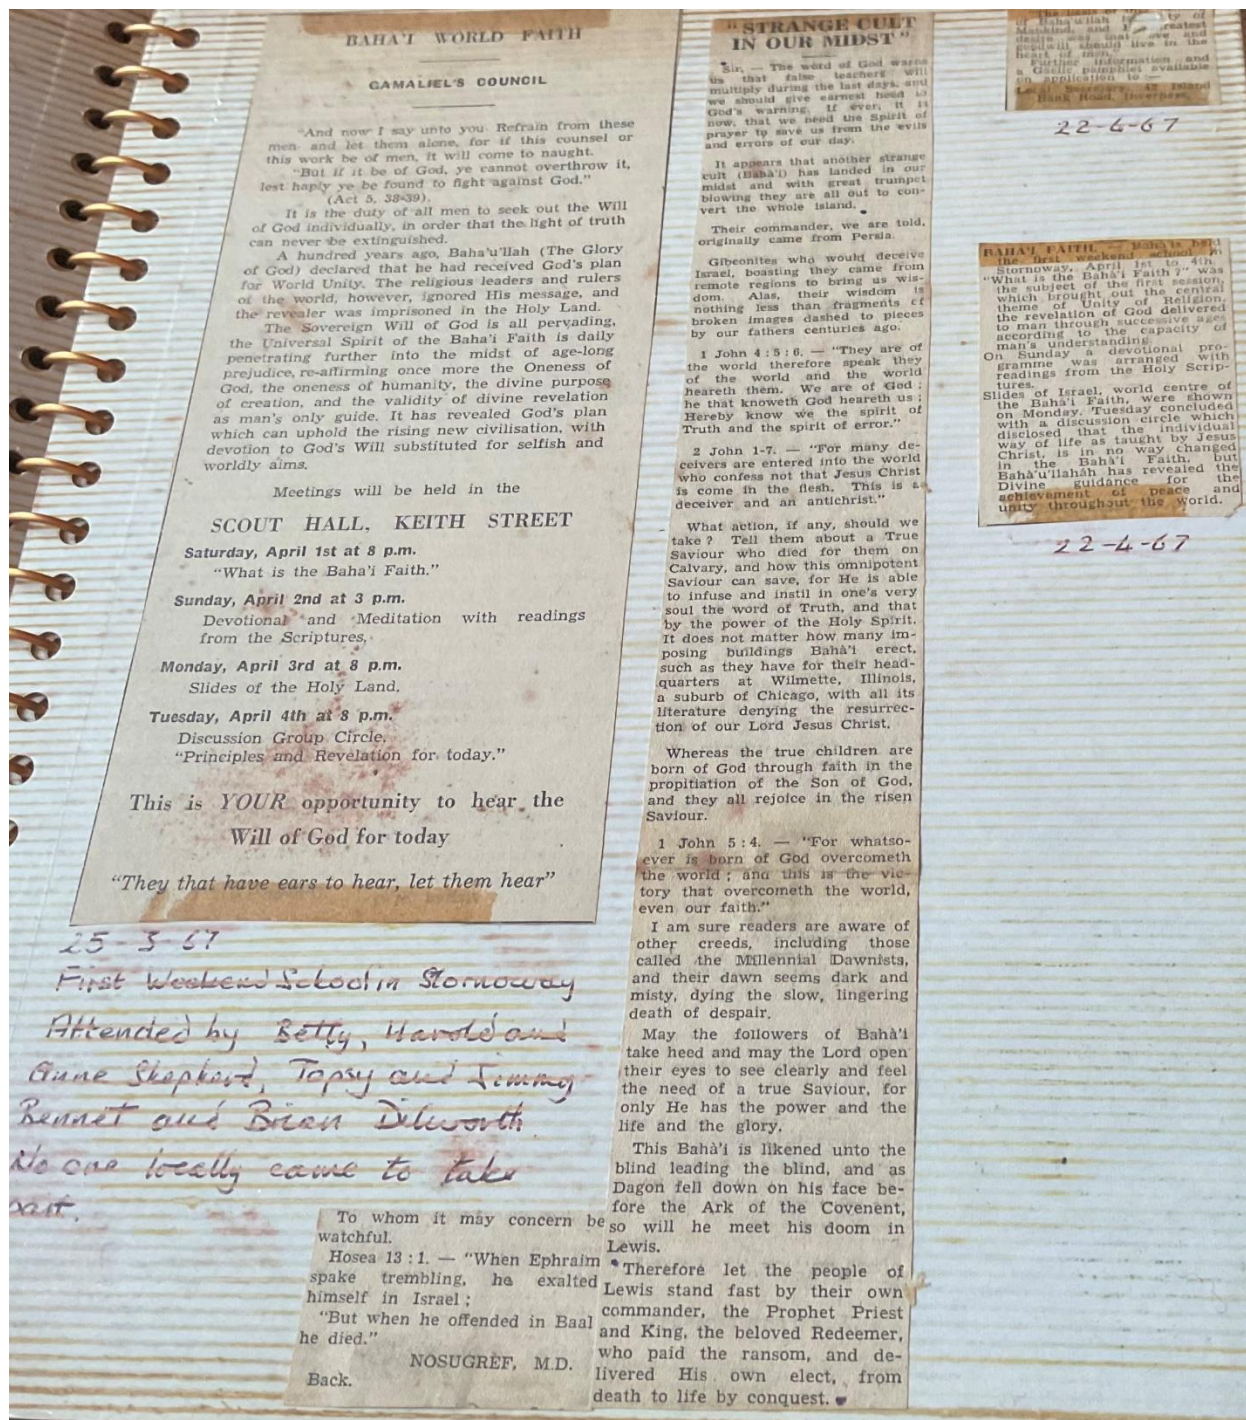 BAHA'I WORLD FAITH
GAMALIEL'S COUNCIL
"And now I say unto you Refrain from these
men and let them alone, for if this counsel or
this work be of men, it will come to naught.
"But if it be of God, ye cannot overthrow it,
lest haply ye be found to fight against God."
(Act 5, 38-39).
It is the duty of all men to seek out the Will
of God individually, in order that the light of truth
can never be extinguished.
A hundred years ago, Baha'u'llah (The Glory
of God) declared that he had received God's plan
for World Unity. The religious leaders and rulers
of the world, however, ignored His message, and
the revealer was imprisoned in the Holy Land.
The Sovereign Will of God is all pervading,
the Universal Spirit of the Baha'i Faith is daily
penetrating further into the midst of age-long
prejudice, re-affirming once more the Oneness of
God, the oneness of humanity, the divine purpose
of creation, and the validity of divine revelation
as man's only guide. It has revealed God's plan
which can uphold the rising new civilisation, with
devotion to God's Will substituted for selfish and
worldly aims.
Meetings will be held in the
SCOUT HALL, KEITH STREET
Saturday, April 1st at 8 p.m.
"What is the Baha'i Faith."
Sunday, April 2nd at 3 p.m.
Devotional and Meditation with readings
from the Scriptures,
Monday, April 3rd at 8 p.m.
Slides of the Holy Land.
Tuesday, April 4th at 8 p.m.
Discussion Group Circle.
"Principles and Revelation for today."
This is YOUR opportunity to hear the
Will of God for today
"They that have ears to hear, let them hear"
25-3-67
First Weekend School in Stornoway
Attended by Betty, Harold and
Anne Shepherd, Topsy and Jimmy
Bennet and Brian Dilworth
No one locally came to take
part.
"STRANGE CULT
IN OUR MIDST"
Sir, — The word of God warns
us that false teachers will
multiply during the last days, and
we should give earnest heed to
God's warning. If ever, it is
now, that we need the Spirit of
prayer to save us from the evils
and errors of our day.
It appears that another strange
cult (Bahà'i) has landed in our
midst and with great trumpet
blowing they are all out to con-
vert the whole island.
Their commander, we are told,
originally came from Persia.
Gibeonites who would deceive
Israel, boasting they came from
remote regions to bring us wis-
dom. Alas, their wisdom is
nothing less than fragments of
broken images dashed to pieces
by our fathers centuries ago.
1 John 4 : 5 : 6. — "They are of
the world therefore speak they
of the world and the world
heareth them. We are of God ;
he that knoweth God heareth us ;
Hereby know we the spirit of
Truth and the spirit of error."
2 John 1-7. — "For many de-
ceivers are entered into the world
who confess not that Jesus Christ
is come in the flesh. This is a
deceiver and an antichrist."
What action, if any, should we
take ? Tell them about a True
Saviour who died for them on
Calvary, and how this omnipotent
Saviour can save, for He is able
to infuse and instil in one's very
soul the word of Truth, and that
by the power of the Holy Spirit.
It does not matter how many im-
posing buildings Bahà'i erect,
such as they have for their head-
quarters at Wilmette, Illinois,
a suburb of Chicago, with all its
literature denying the resurrec-
tion of our Lord Jesus Christ.
Whereas the true children are
born of God through faith in the
propitiation of the Son of God,
and they all rejoice in the risen
Saviour.
1 John 5 : 4. — "For whatso-
ever is born of God overcometh
the world ; and this is the vic-
tory that overcometh the world,
even our faith."
I am sure readers are aware of
other creeds, including those
called the Millennial Dawnists,
and their dawn seems dark and
misty, dying the slow, lingering
death of despair.
May the followers of Bahà'i
take heed and may the Lord open
their eyes to see clearly and feel
the need of a true Saviour, for
only He has the power and the
life and the glory.
This Bahà'i is likened unto the
blind leading the blind, and as
Dagon fell down on his face be-
fore the Ark of the Covenent,
so will he meet his doom in
Lewis.
Therefore let the people of
Lewis stand fast by their own
commander, the Prophet Priest
and King, the beloved Redeemer,
who paid the ransom, and de-
livered His own elect, from
death to life by conquest.
To whom it may concern be
watchful.
Hosea 13 : 1. — "When Ephraim
spake trembling, he exalted
himself in Israel ;
"But when he offended in Baal
he died."
NOSUGREF, M.D.
Back.
of Baha'u'llah
Mankind, and
desire was that love and
goodwill should live in the
heart of men.
Further information and
a Gaelic pamphlet available
on application to —
Local Secretary, 42 Island
Bank Road, Inverness.
22-4-67
BAHA'I FAITH. — Bahà'is held
the first weekend school in
Stornoway, April 1st to 4th.
"What is the Bahà'i Faith ?" was
the subject of the first session,
which brought out the central
theme of Unity of Religion,
the revelation of God delivered
to man through successive ages
according to the capacity of
man's understanding.
On Sunday a devotional pro-
gramme was arranged with
readings from the Holy Scrip-
tures.
Slides of Israel, world centre of
the Bahà'i Faith, were shown
on Monday. Tuesday concluded
with a discussion circle which
disclosed that the individual
way of life as taught by Jesus
Christ, is in no way changed
in the Bahà'i Faith, but
Bahà'u'llahàh has revealed the
Divine guidance for the
achievement of peace and
unity throughout the world.
22-4-67